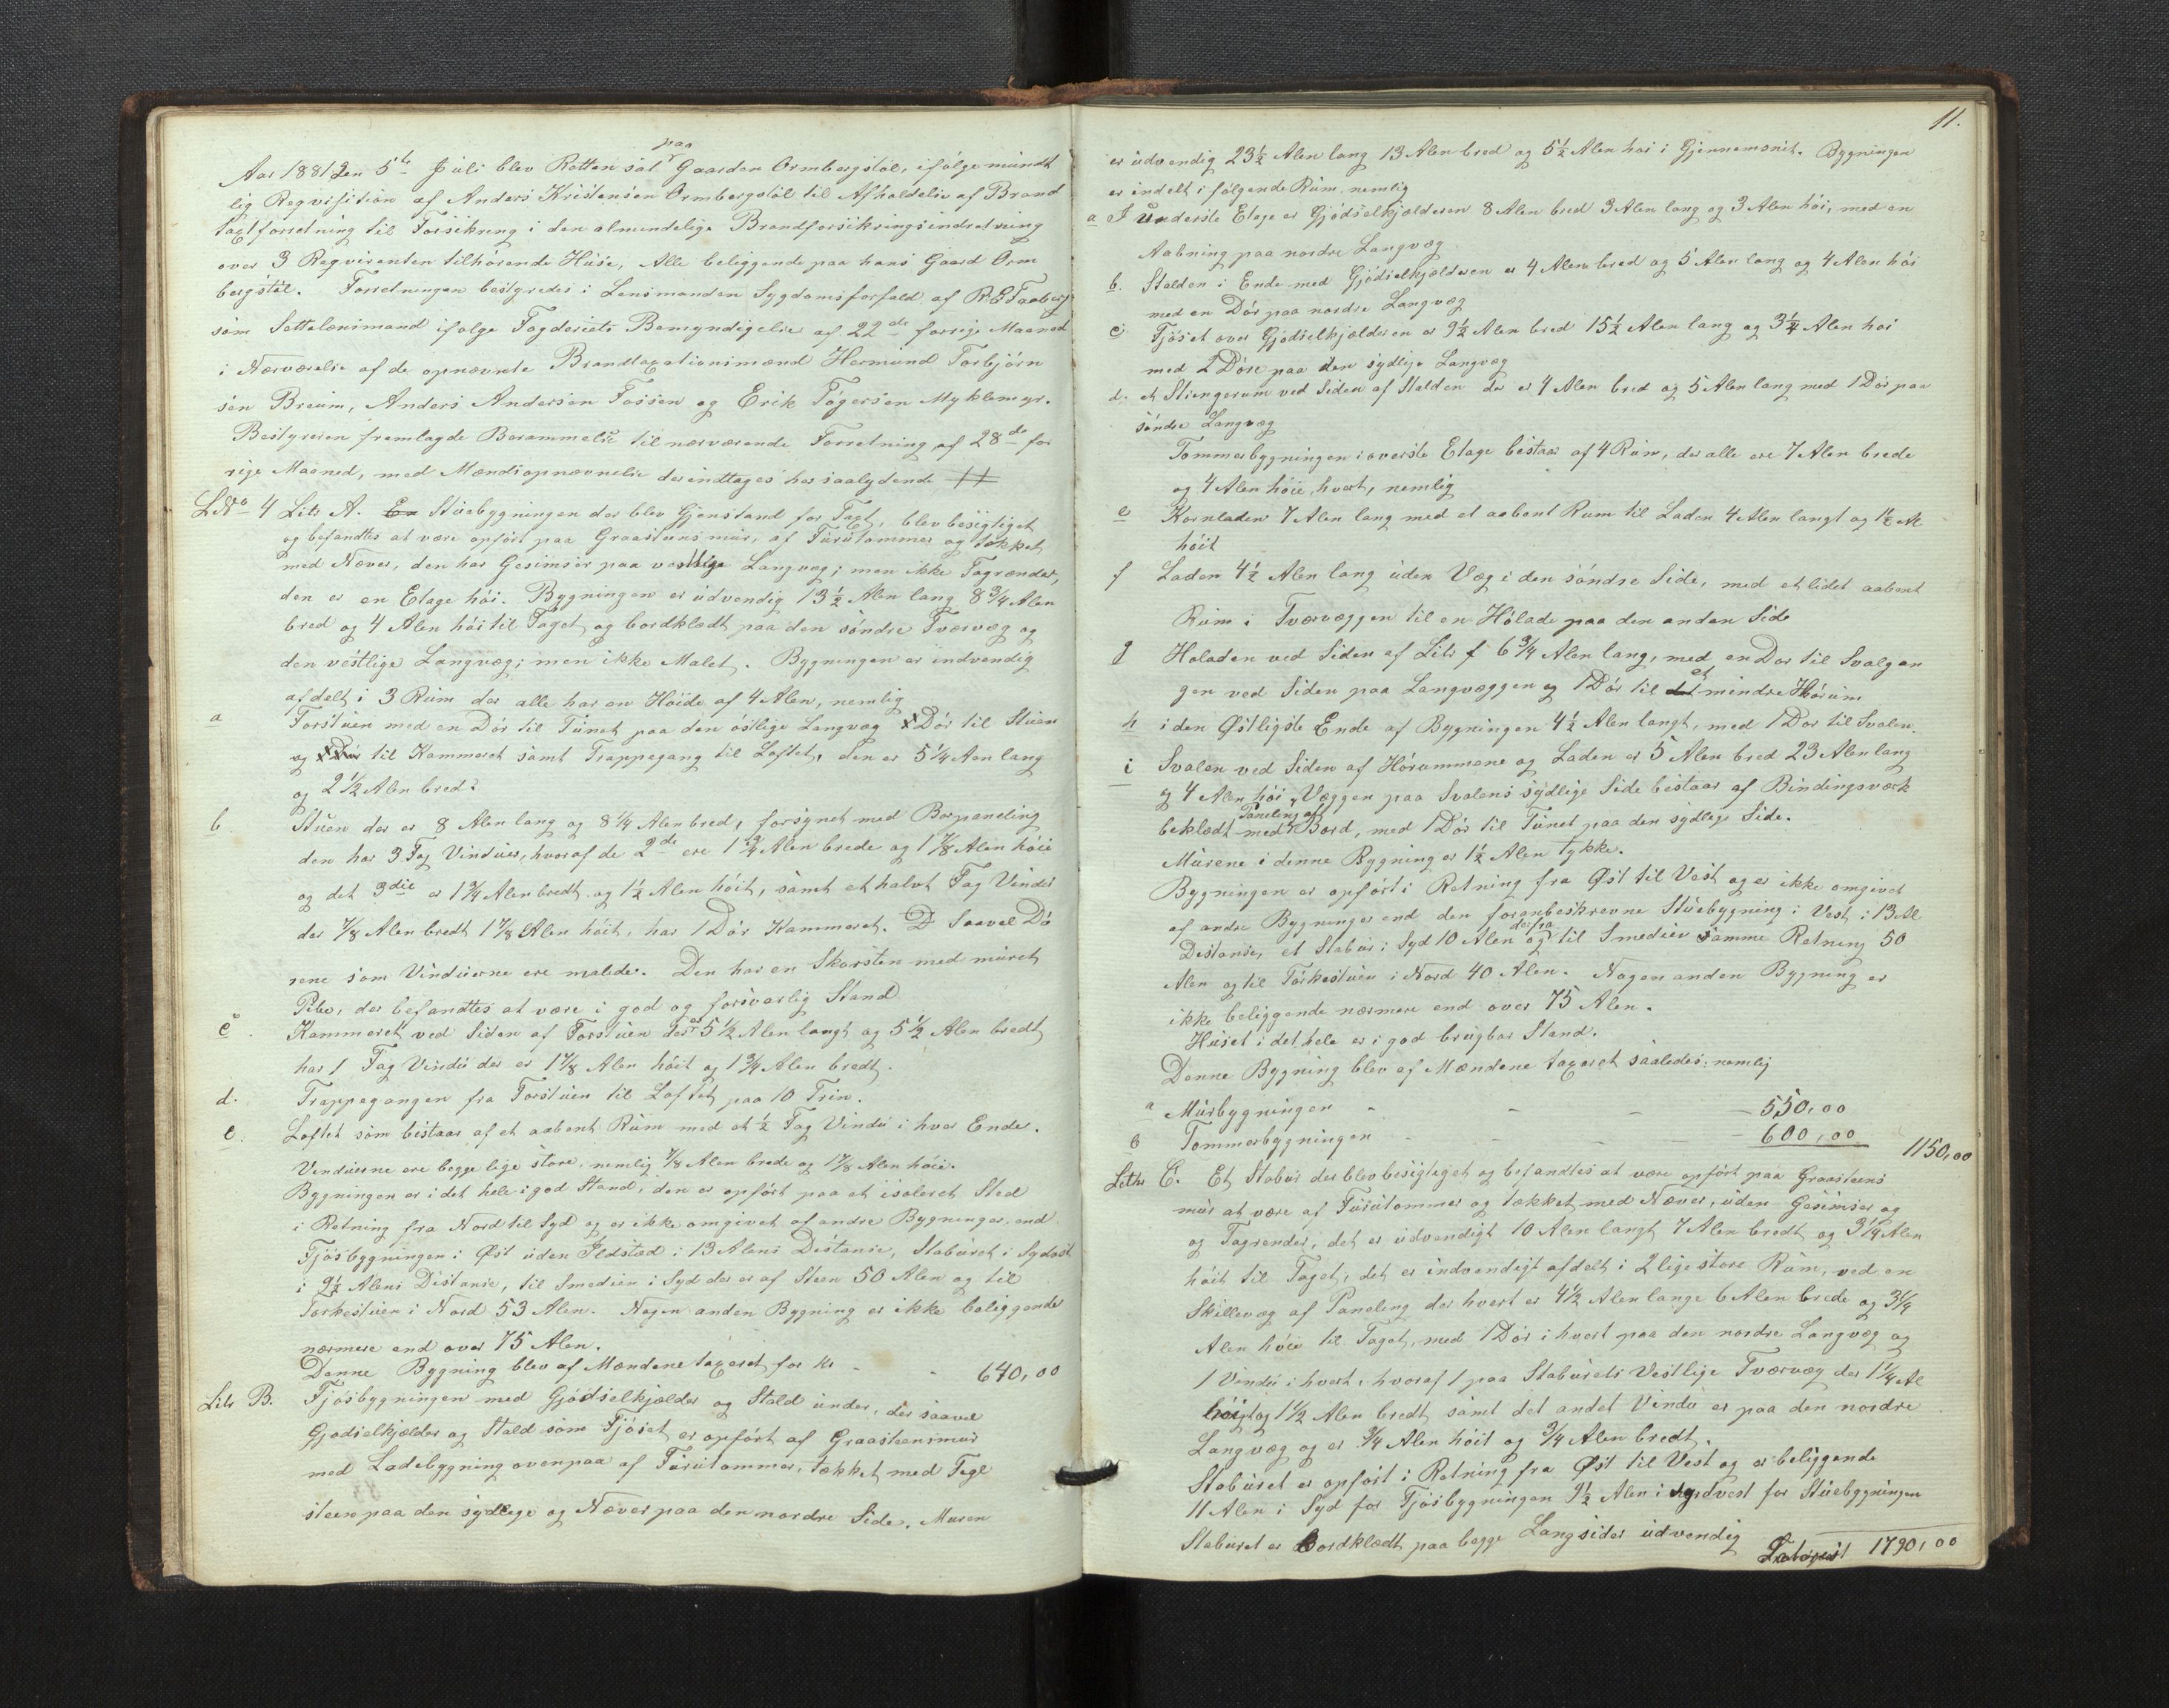 Aar 1881 den 5te Juli blev Retten sat paa Gaarden Ormbergstøl, ifølge mundt
lig Reqvisition af Anders Kristensen Ormbergstøl til Afholdelse af Brand
taxtforretning til Forsikring i den almindelige Brandforsikringsindretning
over 3 Reqvirenten tilhørende Huse, Alle beliggende paa hans Gaard Orm
bergstøl. Forretningen bestyredes i Lensmandens Sygdomsforfald af
som Settelensmand ifølge Fogderiets Bemyndigelse af 22de forrige Maaned
i Nærværelse af de opnævnte Brandtaxationsmænd Hermund Torbjørn
sen Breum, Anders Andersen Fossen og Erik Tøgersen Myklemyr.
Bestyreren fremlagde Berammelse til nærværende Forretning af 28de for
rige Maaned, med Mændsopnævnelse der indtages her saalydende
LNo 4 Litr A. Stuebygningen der blev Gjenstand for Taxt, blev besigtiget
og befandtes at være opført paa Graasteensmur, af Furutømmer og tækket
med Næver, den har Gesimser paa vestlige Langvæg; men ikke Tagrender,
den er en Etage høi. Bygningen er udvendig 13½ Alen lang 8¾ Alen
bred og 4 Alen høi til Taget og bordklædt paa den søndre Tværvæg og
den vestlige Langvæg; men ikke Malet. Bygningen er indvendig
afdelt i 3 Rum der alle har en Høide af 4 Alen, nemlig
a Forstuen med en Dør til Tunet paa den østlige Langvæg Dør til Stuen
og til Kammeret samt Trappegang til Loftet, den er 5¼ Alen lang
og 2½ Alen bred.
b Stuen der er 8 Alen lang og 8¼ Alen bred, forsynet med Borpaneling
den har 3 Fag Vinduer, hvoraf de 2de ere 1¾ Alen brede og 1⅞ Alen høie
og det 3die er 1¾ Alen bredt og 1½ Alen høit, samt et halvt Fag Vindu
der ⅞ Alen bredt 1⅞ Alen høit, har 1 Dør Kammeret. Saavel Dø
rene som Vinduerne ere malede. Den har en Skorsten med muret
Pibe, der befandtes at være i god og forsvarlig Stand
c Kammeret ved Siden af Forstuen der er 5½ Alen langt og 5½ Alen bredt
har 1 Fag Vindu der er 1⅞ Alen høit og 1¾ Alen bredt.
d. Trappegangen fra Forstuen til Loftet paa 10 Trin.
e. Loftet som bestaar af et aabent Rum med et ½ Fag Vindu i hver Ende.
Vinduerne ere begge lige store, nemlig ⅞ Alen brede og 1⅞ Alen høie.
Bygningen er i det hele i god Stand, den er opført paa et isoleret Sted
i Retning fra Nord til Syd og er ikke omgivet af andre Bygninger end
Fjøsbygningen i Øst uden Ildsted i 13 Alens Distanse, Staburet i Sydost
i 9½ Alens Distanse, til Smedien i Syd der er af Steen 50 Alen og til
Tørkestuen i Nord 53 Alen. Nogen anden Bygning er ikke beliggende
nærmere end over 75 Alen.
Denne Bygning blev af Mændene taxeret for Kr - - 640,00
Litr B. Fjøsbygningen med Gjødselkjælder og Stald under, der saavel
Gjødselkjælder og Stald som Fjøset er opført af Graasteensmur
med Ladebygning ovenpaa af Furutømmer, tækket med Tegl
steen paa den sydlige og Næver paa den nordre Side. Muren
11.
er udvendig 23½ Alen lang 13 Alen bred og 5½ Alen høi i Gjennemsnit. Bygningen
er indelt i følgende Rum, nemlig
a I underste Etage er Gjødselkjælderen 8 Alen bred 3 Alen lang og 3 Alen høi, med en
Aabning paa nordre Langvæg
b. Stalden i Ende med Gjødselkjælderen er 4 Alen bred og 5 Alen lang og 4 Alen høi
med en Dør paa nordre Langvæg
c Fjøset over Gjødselkjælderen er 9½ Alen bred 15½ Alen lang og 3¼ Alen høi
med 2 Døre paa den sydlige Langvæg
d. et Stængerum ved Siden af Stalden der er 4 Alen bred og 5 Alen lang med 1 Dør paa
søndre Langvæg
Tømmerbygningen i øverste Etage bestaar af 4 Rum, der alle ere 7 Alen brede
og 4 Alen høie, hvert, nemlig
e Kornladen 7 Alen lang med et aabent Rum til Laden 4 Alen langt og 1½ Al
høit
f Laden 4½ Alen lang uden Væg i den søndre Side, med et lidet aabent
Rum i Tværvæggen til en Hølade paa den anden Side
g Høladen ved Siden af Litr f 6¾ Alen lang, med en Dør til Svalgan
gen ved Siden paa Langvæggen og 1 Dør til et mindre Hørum
h i den Østligste Ende af Bygningen 4½ Alen langt, med 1 Dør til Svalen.
i Svalen ved Siden af Hørummene og Laden er 5 Alen bred 23 Alen lang
og 4 Alen høi, Væggen paa Svalens sydlige Side bestaar af Bindingsværk
beklædt med Paneling af Bord, med 1 Dør til Tunet paa den sydlige Side.
Murene i denne Bygning er 1½ Alen tykke.
Bygningen er opført i Retning fra Øst til Vest og er ikke omgivet
af andre Bygninger end den foranbeskrevne Stuebygning i Vest i 13 Al
Distanse, et Stabur i Syd 10 Alen derfra og til Smedien samme Retning 50
Alen og til Tørkestuen i Nord 40 Alen. Nogen anden Bygning er
ikke beliggende nærmere end over 75 Alen.
Huset i det hele er i god brugbar Stand.
Denne Bygning blev af Mændene taxeret saaledes: nemlig
a Murbygningen - - - - 550,00
b Tømmerbygningen - - - - 600,00 1150,00
Littr C. Et Stabur der blev besigtiget og befandtes at være opført paa Graasteens
mur at være af Furutømmer og tækket med Næver, uden Gesimser og
og Tagrender, det er udvendigt 10 Alen langt 7 Alen bredt og 3¼ Alen
høit til Taget, det er indvendigt afdelt i 2 lige store Rum, ved en
Skillevæg af Paneling der hvert er 4½ Alen lange 6 Alen brede og 3¼
Alen høie til Taget, med 1 Dør i hvert paa den nordre Langvæg og
1 Vindu i hvert, hvoraf 1 paa Staburets Vestlige Tværvæg der 1¼ Al
høigt og 1½ Alen bredt samt det andet Vindu er paa den nordre
Langvæg og er ¾ Alen høit og ¾ Alen bredt.
Staburet er opført i Retning fra Øst til Vest og er beliggende
11 Alen i Syd for Fjøsbygningen 9½ Alen i sydvest for Stuebygningen
Staburet er Bordklædt paa begge Langsider udvendig 1790,00